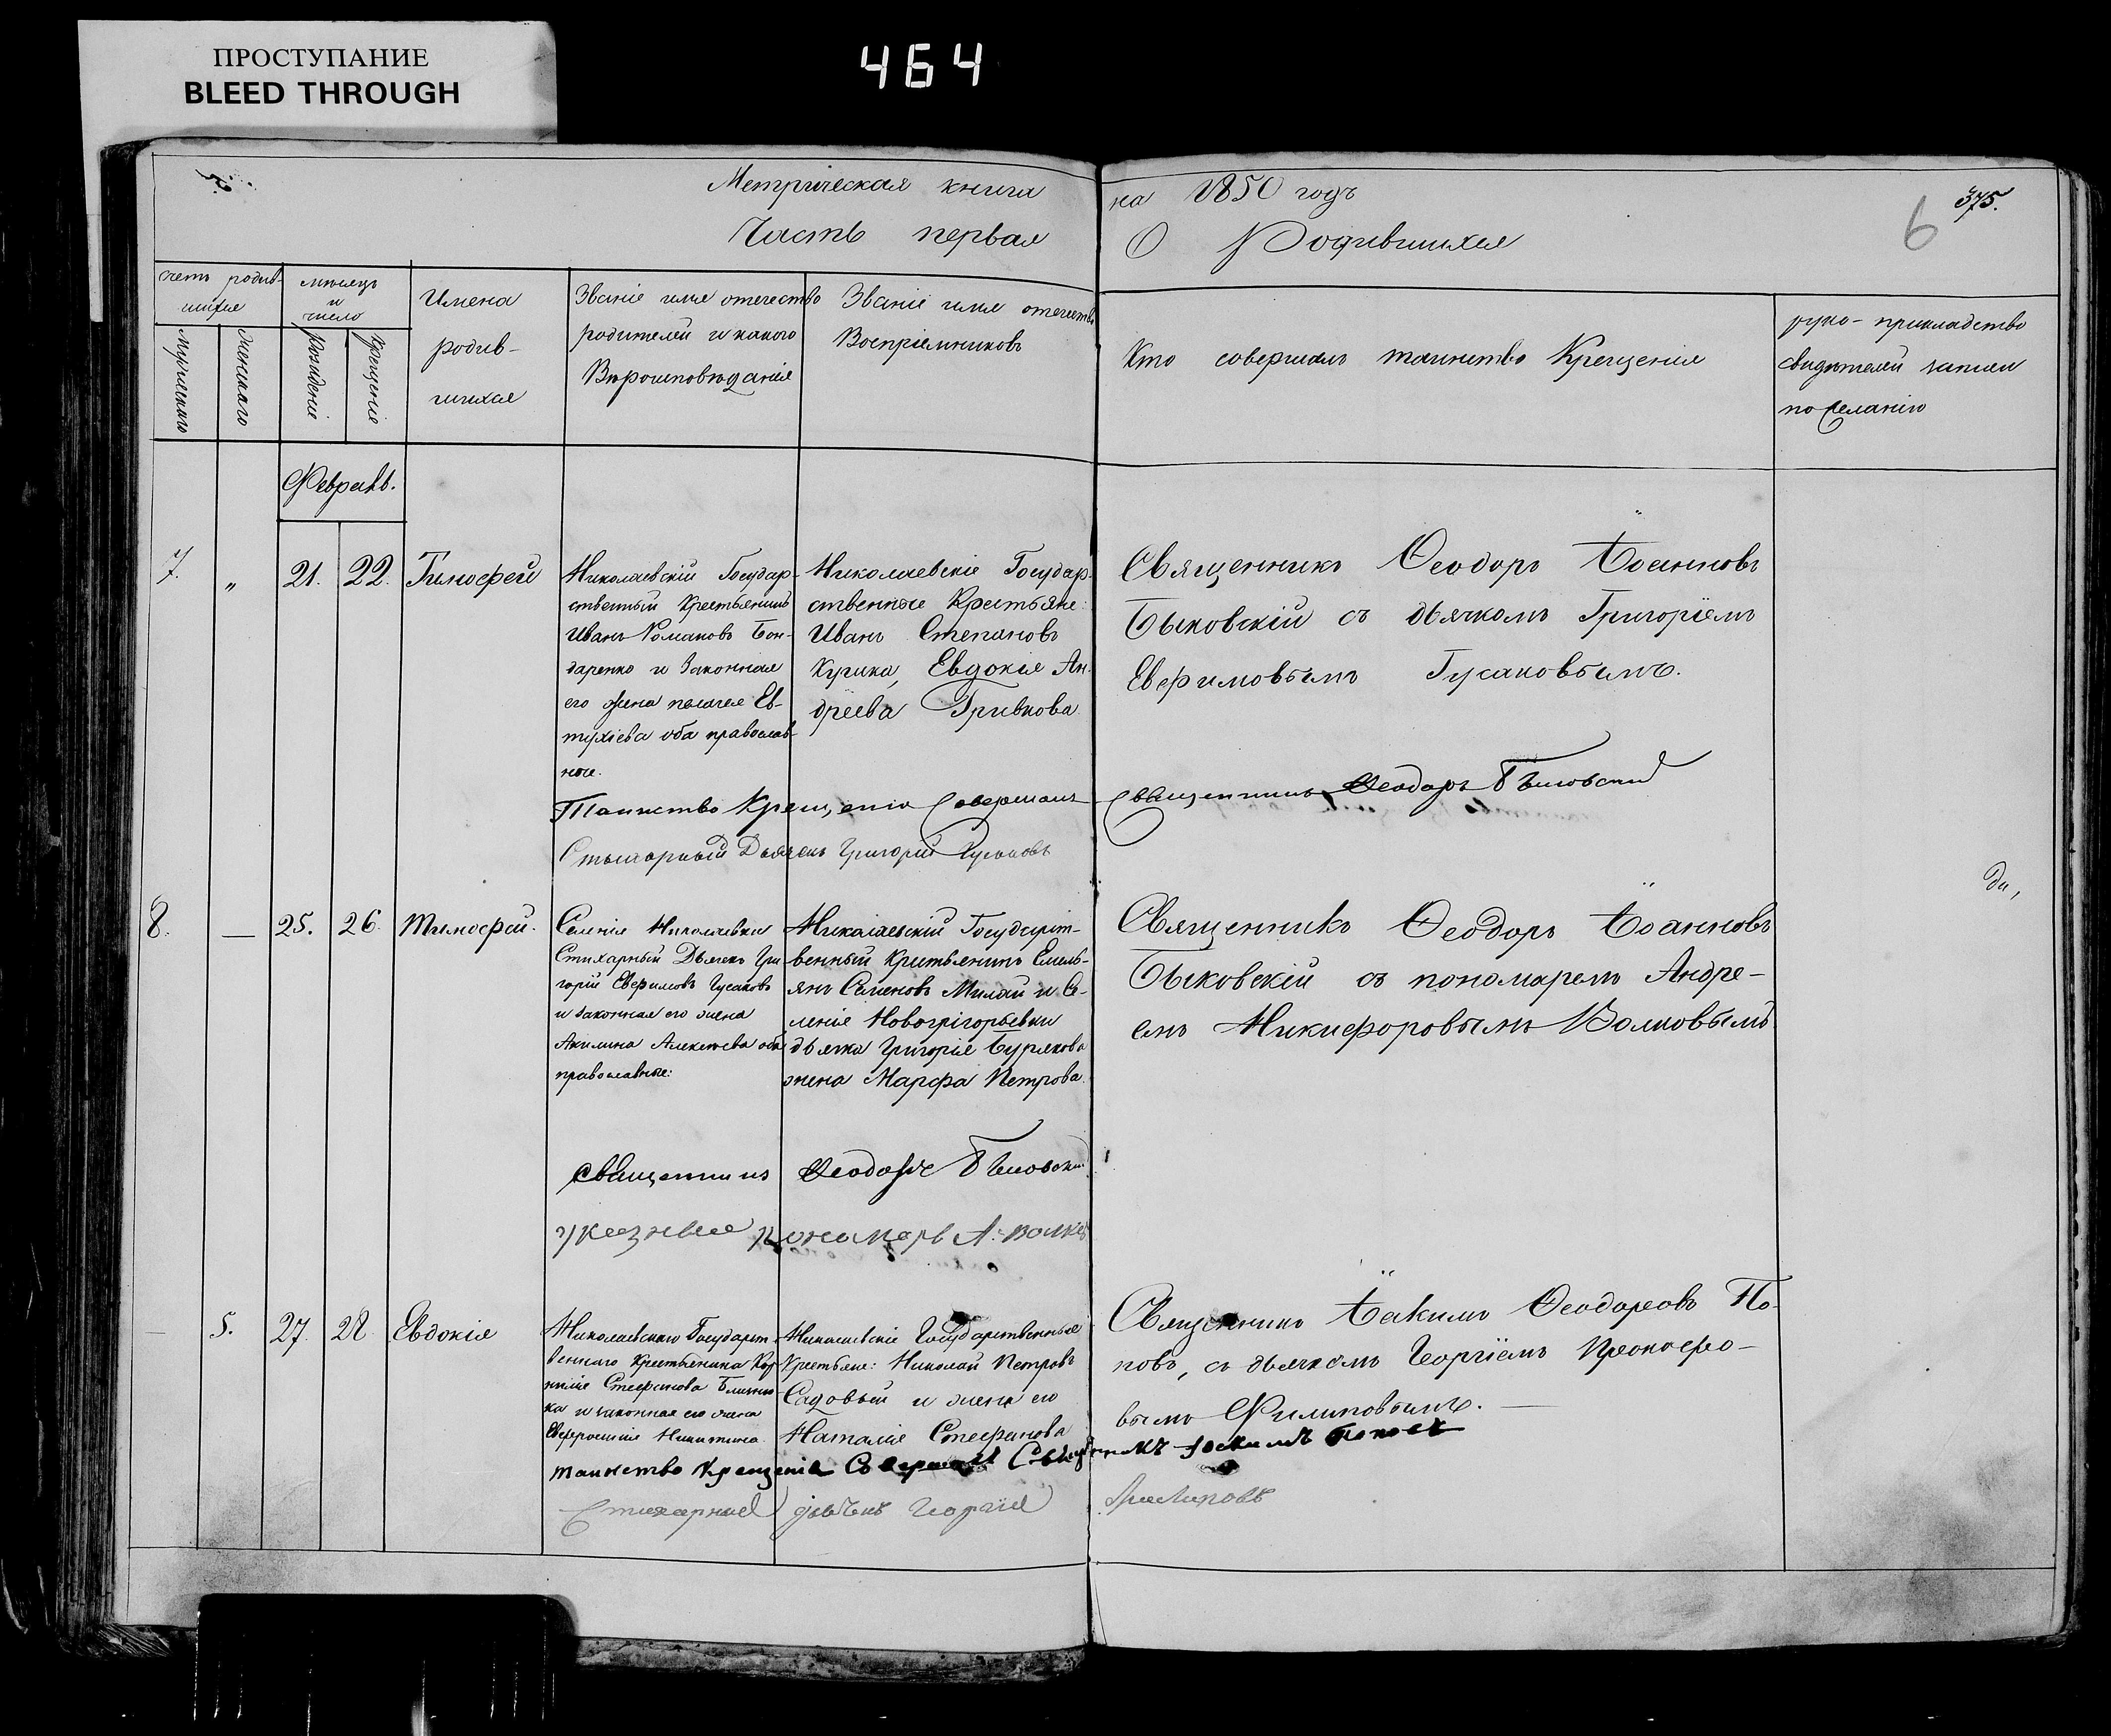 ПРОСТУПАНИЕ
BLEED THROUGH
464
Метрическая книга на 1850 годъ
375.
6
Часть первая О Родившихся
счетъ родив-
шихся
мужескаго
женскаго
мѣсяцъ
и
число
рожденіе
крещеніе
Имена
родив-
шихся
Званіе имя отечество
родителей и какого
Вѣроисповѣданія
Званіе имя отечество
Воспріемниковъ
Кто совершалъ таинство Крещенія
руко-прикладство
свидѣтелей записи
по желанію
Февраль.
7. „ 21. 22. Тимофей
Николаевскій Государ-
ственный Крестьянинъ
Иванъ Романовъ Бон-
даренко и Законная
его жена пелагея Ев-
тухіева оба православ-
ные.
Николаевскіе Государ-
ственные Крестьяне:
Иванъ Степановъ
Курика, Евдокія Ан-
дреева Гривкова.
Священникъ Ѳеодоръ Іоанновъ
Быковскій съ дьячкомъ Григоріемъ
Евфимовымъ Гусаковымъ.
Таинство Крещенія Совершалъ Священникъ Ѳеодоръ Быковскій
Стихарный Дьячекъ Григорій Гусаковъ
8. — 25. 26. Тимофей.
Селенія Николаевки
Стихарный Дьячекъ Гри-
горій Евфимовъ Гусаковъ
и законная его жена
Акилина Алексѣева оба
православные:
Николаевскій Государст-
венный Крестьянинъ Емель-
янъ Семеновъ Милай и Се-
ленія Новогригорьевки
дьячка Григорія Бурлакова
жена Марфа Петрова.
Священникъ Ѳеодоръ Іоанновъ
Быковскій съ пономаремъ Андре-
емъ Никифоровымъ Волковымъ
да,
священникъ Ѳеодоръ Быковскій
указный пономарь А. Волковъ
— 5. 27. 28 Евдокія
Николаевскаго Государст-
веннаго Крестьянина Кор-
нилія Стефанова
и законная его жена
Евфросинія Никитина
Николаевскіе Государственные
Крестьяне: Николай Петровъ
Садовый и жена его
Наталія Стефанова
Священникъ Іакимъ Ѳеодоровъ По-
повъ, съ дьячкомъ Георгіемъ Прокофіе-
вымъ Филиповымъ. —
таинство крещенія Совершалъ Священникъ Іоакимъ Поповъ
Стихарный дьячекъ Георгій Филиповъ